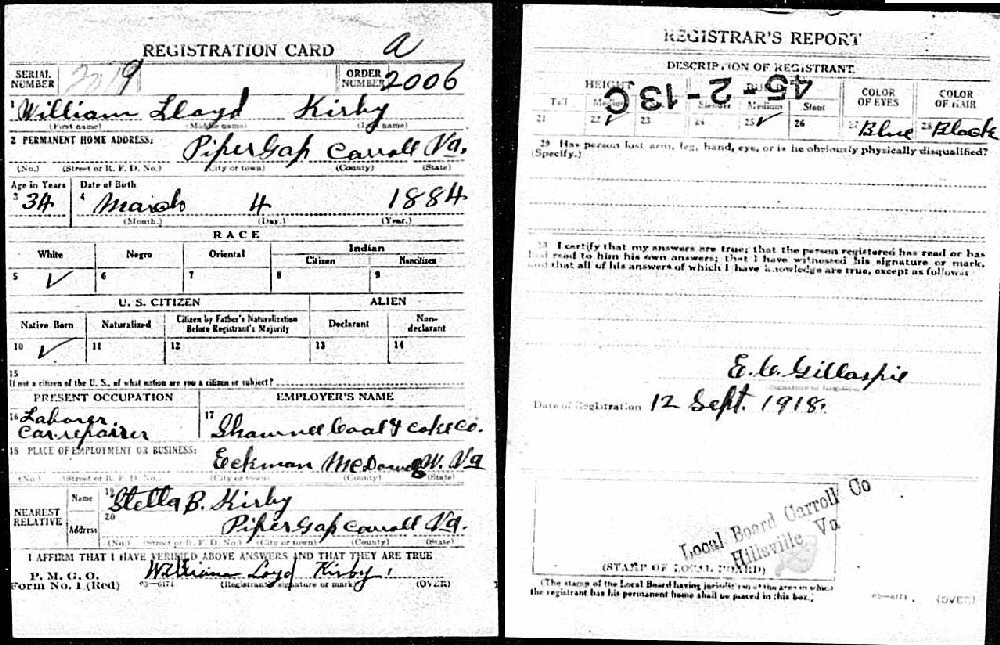 REGISTRATION CARD a
SERIAL NUMBER 2019 ORDER NUMBER 2006
1 William Lloyd Kirby
(First name) (Middle name) (Last name)
2 PERMANENT HOME ADDRESS: PiperGap Carroll Va.
(No.) (Street or R. F. D. No.) (City or town) (County) (State)
Age in Years Date of Birth
3 34 4 March 4 1884
(Month.) (Day.) (Year.)
RACE
White Negro Oriental Indian
Citizen Noncitizen
5 ✓ 6 7 8 9
U. S. CITIZEN ALIEN
Native Born Naturalized Citizen by Father's Naturalization Before Registrant's Majority Declarant Non-declarant
10 ✓ 11 12 13 14
15
If not a citizen of the U. S., of what nation are you a citizen or subject?
PRESENT OCCUPATION EMPLOYER'S NAME
16 Laborer 17
Car-repairer Shawnee Coal & Coke Co.
18 PLACE OF EMPLOYMENT OR BUSINESS:
Eckman McDowell W. Va
(No.) (Street or R. F. D. No.) (City or town) (County) (State)
NEAREST RELATIVE
Name 19 Stella B. Kirby
Address 20 PiperGap Carroll Va.
(No.) (Street or R. F. D. No.) (City or town) (County) (State)
I AFFIRM THAT I HAVE VERIFIED ABOVE ANSWERS AND THAT THEY ARE TRUE
P. M. G. O.
Form No. 1 (Red) William Loyd Kirby
(Registrant's signature or mark) (OVER)
REGISTRAR'S REPORT
45-2-13 C
DESCRIPTION OF REGISTRANT
HEIGHT BUILD COLOR OF EYES COLOR OF HAIR
Tall Medium Slender Medium Stout
21 22 ✓ 23 24 25 ✓ 26 27 Blue 28 Black
29 Has person lost arm, leg, hand, eye, or is he obviously physically disqualified?
(Specify.)
30 I certify that my answers are true; that the person registered has read or has
had read to him his own answers; that I have witnessed his signature or mark,
and that all of his answers of which I have knowledge are true, except as follows:
E. C. Gillaspie
(Signature of Registrar)
Date of Registration 12 Sept. 1918.
Local Board Carroll Co
Hillsville Va
(STAMP OF LOCAL BOARD)
(The stamp of the Local Board having jurisdiction of the area in which
the registrant has his permanent home shall be placed in this box.)
(OVER)